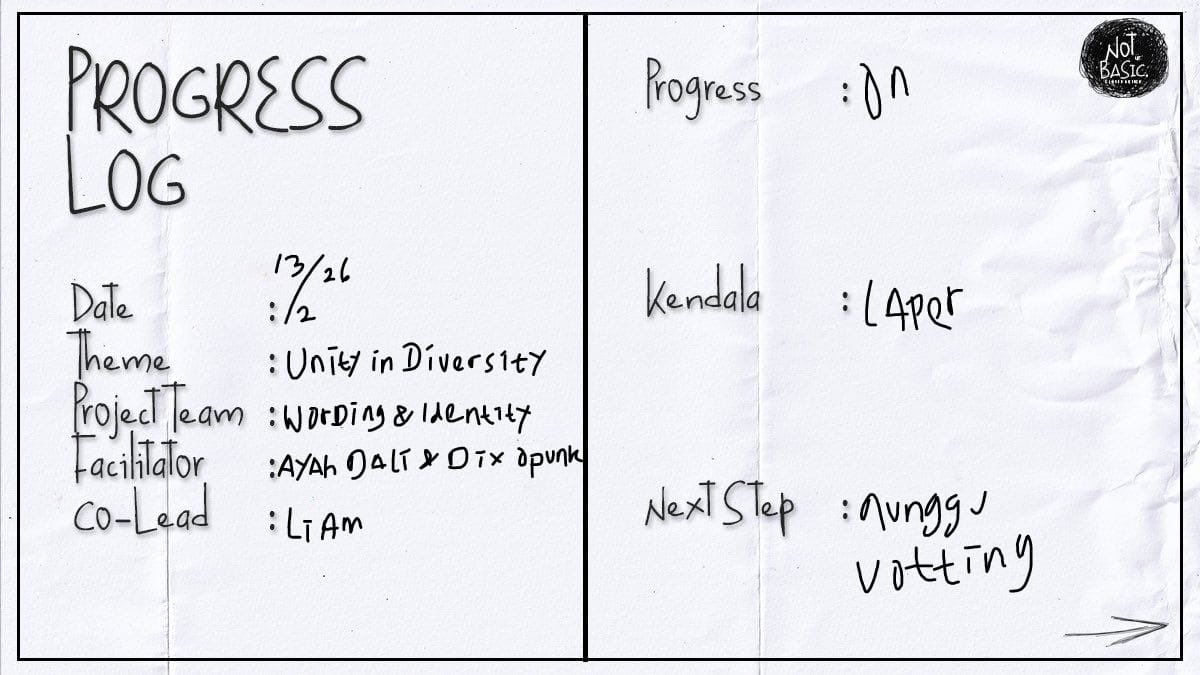 PROGRESS
LOG
Date : 13/2/26
Theme : Unity in Diversity
Project Team : Wording & Identity
Facilitator : AYAh DALI & DIX Opunk
CO-Lead : LIAM
NOT
BASIC.
Progress : ON
Kendala : LAPer
Next Step : nunggu
votting